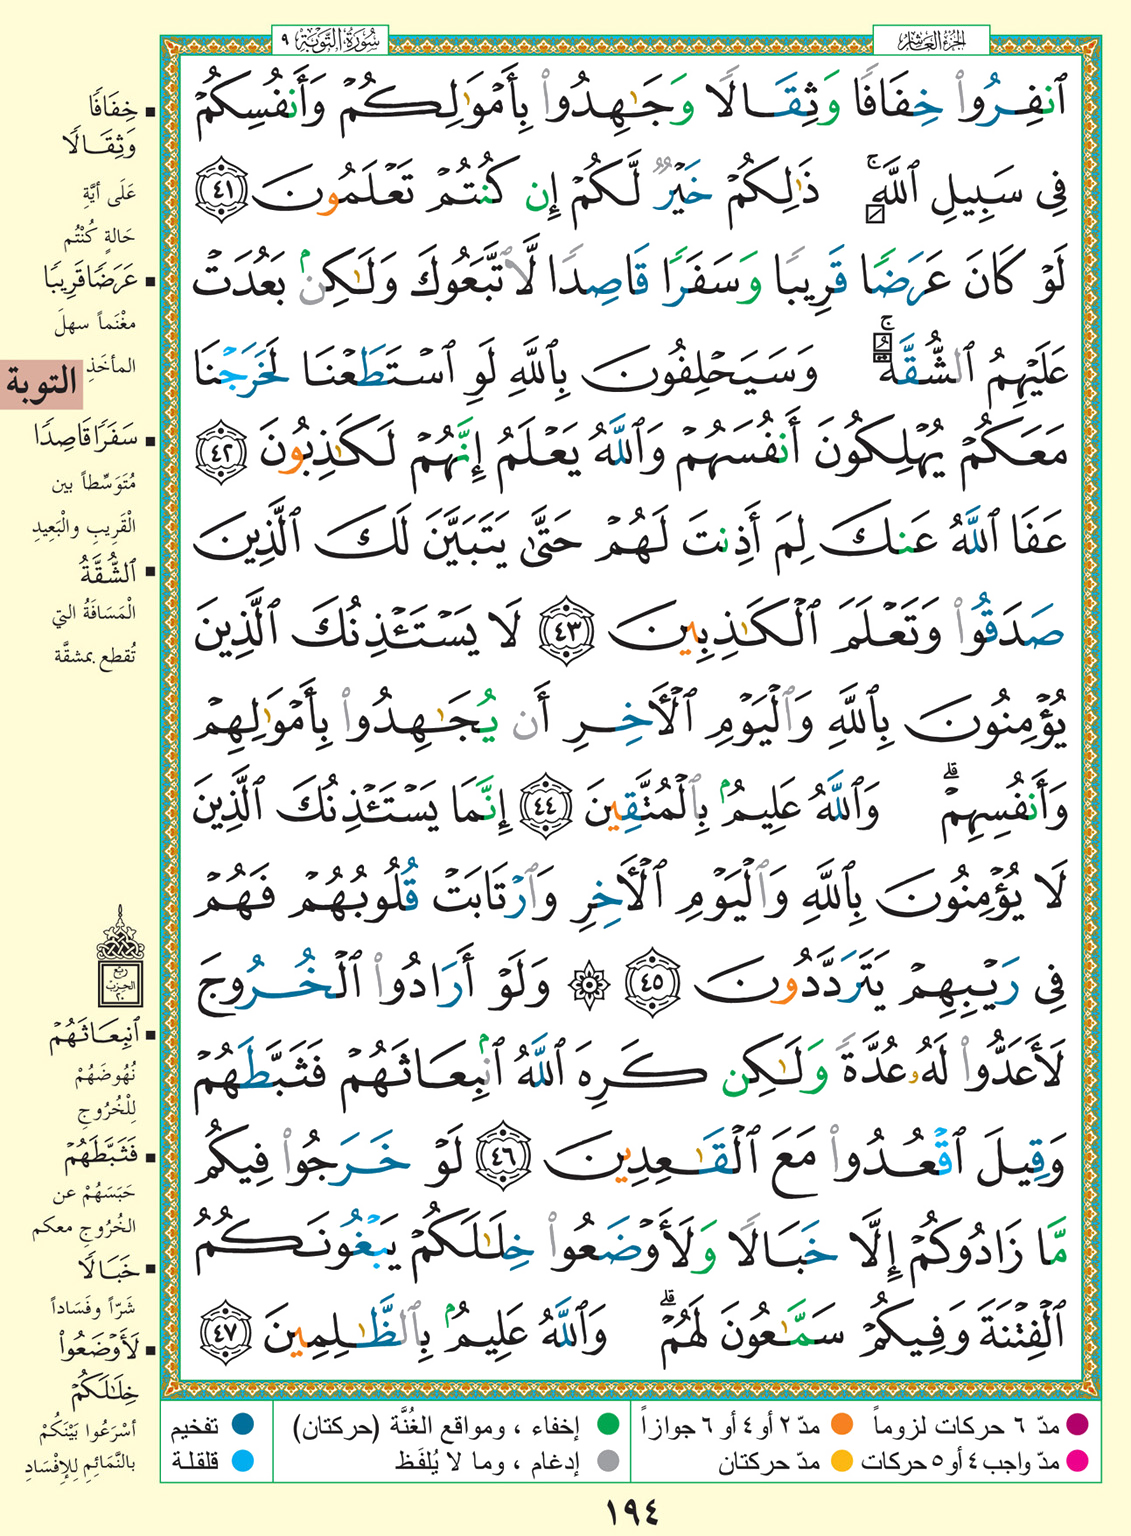 الجزء العاشر
سُورَةُ التَّوْبَةِ ٩
ٱنفِرُوا۟ خِفَافًا وَثِقَالًا وَجَـٰهِدُوا۟ بِأَمْوَٰلِكُمْ وَأَنفُسِكُمْ
فِى سَبِيلِ ٱللَّهِ ۚ ذَٰلِكُمْ خَيْرٌ لَّكُمْ إِن كُنتُمْ تَعْلَمُونَ ٤١
لَوْ كَانَ عَرَضًا قَرِيبًا وَسَفَرًا قَاصِدًا لَّٱتَّبَعُوكَ وَلَـٰكِنۢ بَعُدَتْ
عَلَيْهِمُ ٱلشُّقَّةُ ۚ وَسَيَحْلِفُونَ بِٱللَّهِ لَوِ ٱسْتَطَعْنَا لَخَرَجْنَا
مَعَكُمْ يُهْلِكُونَ أَنفُسَهُمْ وَٱللَّهُ يَعْلَمُ إِنَّهُمْ لَكَـٰذِبُونَ ٤٢
عَفَا ٱللَّهُ عَنكَ لِمَ أَذِنتَ لَهُمْ حَتَّىٰ يَتَبَيَّنَ لَكَ ٱلَّذِينَ
صَدَقُوا۟ وَتَعْلَمَ ٱلْكَـٰذِبِينَ ٤٣ لَا يَسْتَـْٔذِنُكَ ٱلَّذِينَ
يُؤْمِنُونَ بِٱللَّهِ وَٱلْيَوْمِ ٱلْـَٔاخِرِ أَن يُجَـٰهِدُوا۟ بِأَمْوَٰلِهِمْ
وَأَنفُسِهِمْ ۗ وَٱللَّهُ عَلِيمٌۢ بِٱلْمُتَّقِينَ ٤٤ إِنَّمَا يَسْتَـْٔذِنُكَ ٱلَّذِينَ
لَا يُؤْمِنُونَ بِٱللَّهِ وَٱلْيَوْمِ ٱلْـَٔاخِرِ وَٱرْتَابَتْ قُلُوبُهُمْ فَهُمْ
فِى رَيْبِهِمْ يَتَرَدَّدُونَ ٤٥ ۞ وَلَوْ أَرَادُوا۟ ٱلْخُرُوجَ
لَأَعَدُّوا۟ لَهُۥ عُدَّةً وَلَـٰكِن كَرِهَ ٱللَّهُ ٱنۢبِعَاثَهُمْ فَثَبَّطَهُمْ
وَقِيلَ ٱقْعُدُوا۟ مَعَ ٱلْقَـٰعِدِينَ ٤٦ لَوْ خَرَجُوا۟ فِيكُم
مَّا زَادُوكُمْ إِلَّا خَبَالًا وَلَأَوْضَعُوا۟ خِلَـٰلَكُمْ يَبْغُونَكُمُ
ٱلْفِتْنَةَ وَفِيكُمْ سَمَّـٰعُونَ لَهُمْ ۗ وَٱللَّهُ عَلِيمٌۢ بِٱلظَّـٰلِمِينَ ٤٧
خِفَافًا
وَثِقَالًا
عَلَى أيَّةِ
حَالةٍ كُنْتُم
عَرَضًا قَرِيبًا
مغْنَماً سهلَ
المأخَذِ
التوبة
سَفَرًا قَاصِدًا
مُتَوَسِّطاً بين
الْقَريبِ والْبَعِيدِ
ٱلشُّقَّةُ
الْمَسَافَةُ التي
تُقطع بمشقَّة
ربع
الحزب
٢٠
ٱنۢبِعَاثَهُمْ
نُهُوضَهُمْ
لِلْخُرُوجِ
فَثَبَّطَهُمْ
حَبَسَهُمْ عن
الخُرُوجِ معكم
خَبَالًا
شَرّاً وفَسَاداً
لَأَوْضَعُوا۟
خِلَـٰلَكُمْ
أسْرَعُوا بَيْنَكُمْ
بالنَّمَائِمِ لِلإفْسَادِ
مدّ ٦ حركات لزوماً
مدّ ٢ أو ٤ أو ٦ جوازاً
إخفاء ، ومواقع الغُنَّة (حركتان)
تفخيم
مدّ واجب ٤ أو ٥ حركات
مدّ حركتان
إدغام ، وما لا يُلفَظ
قلقلة
١٩٤